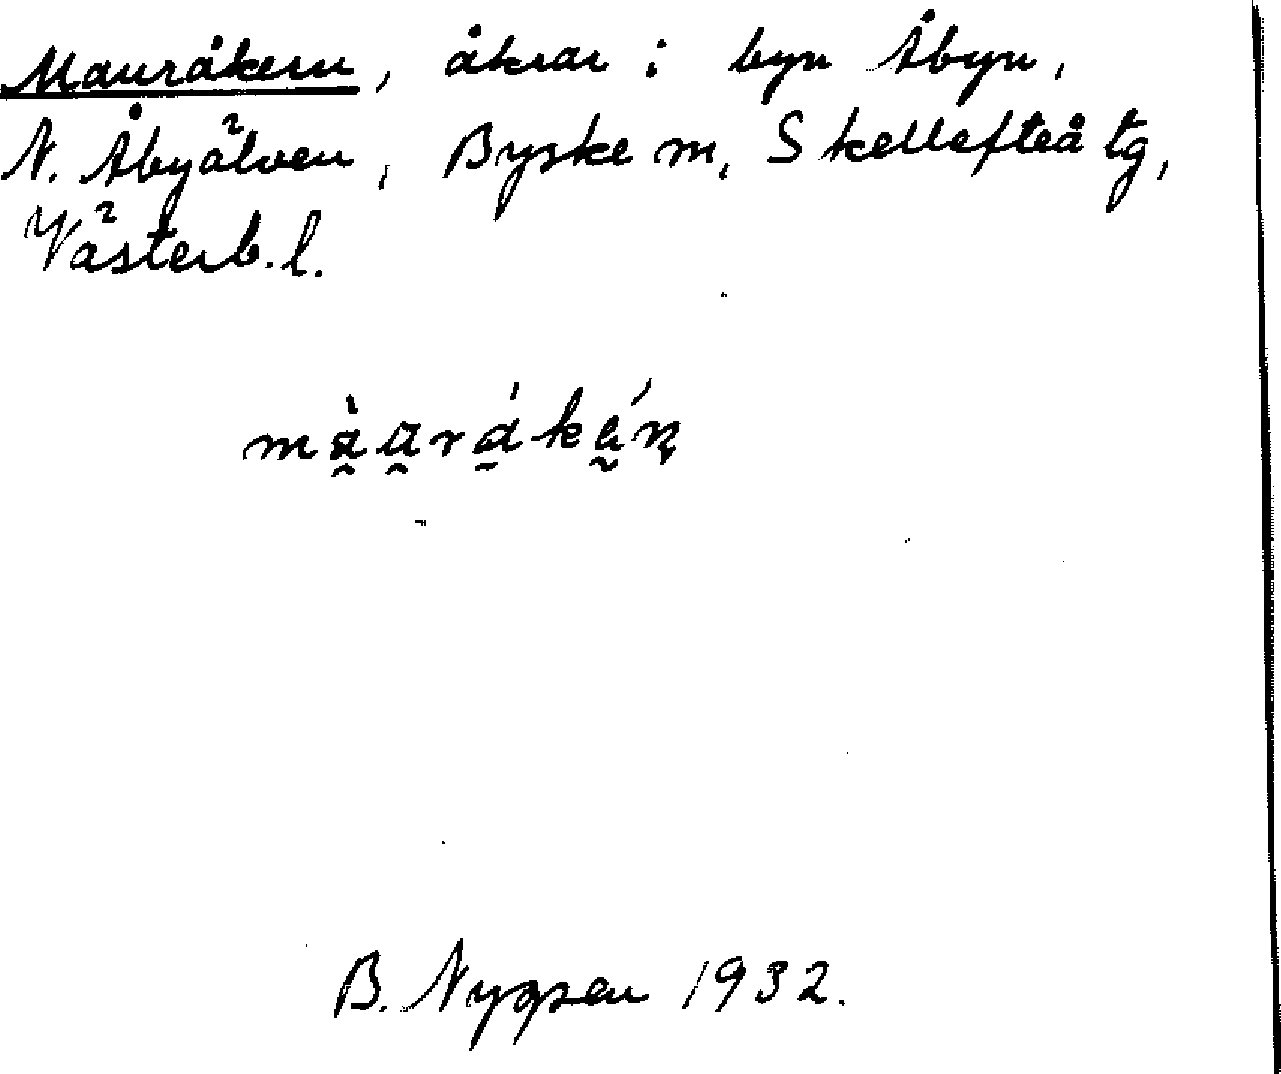 Mauråkern, åkrar i byn Åbyn,
N. Åbyälven, Byske sn, Skellefteå tg,
Västerb. l.
B. 1932.